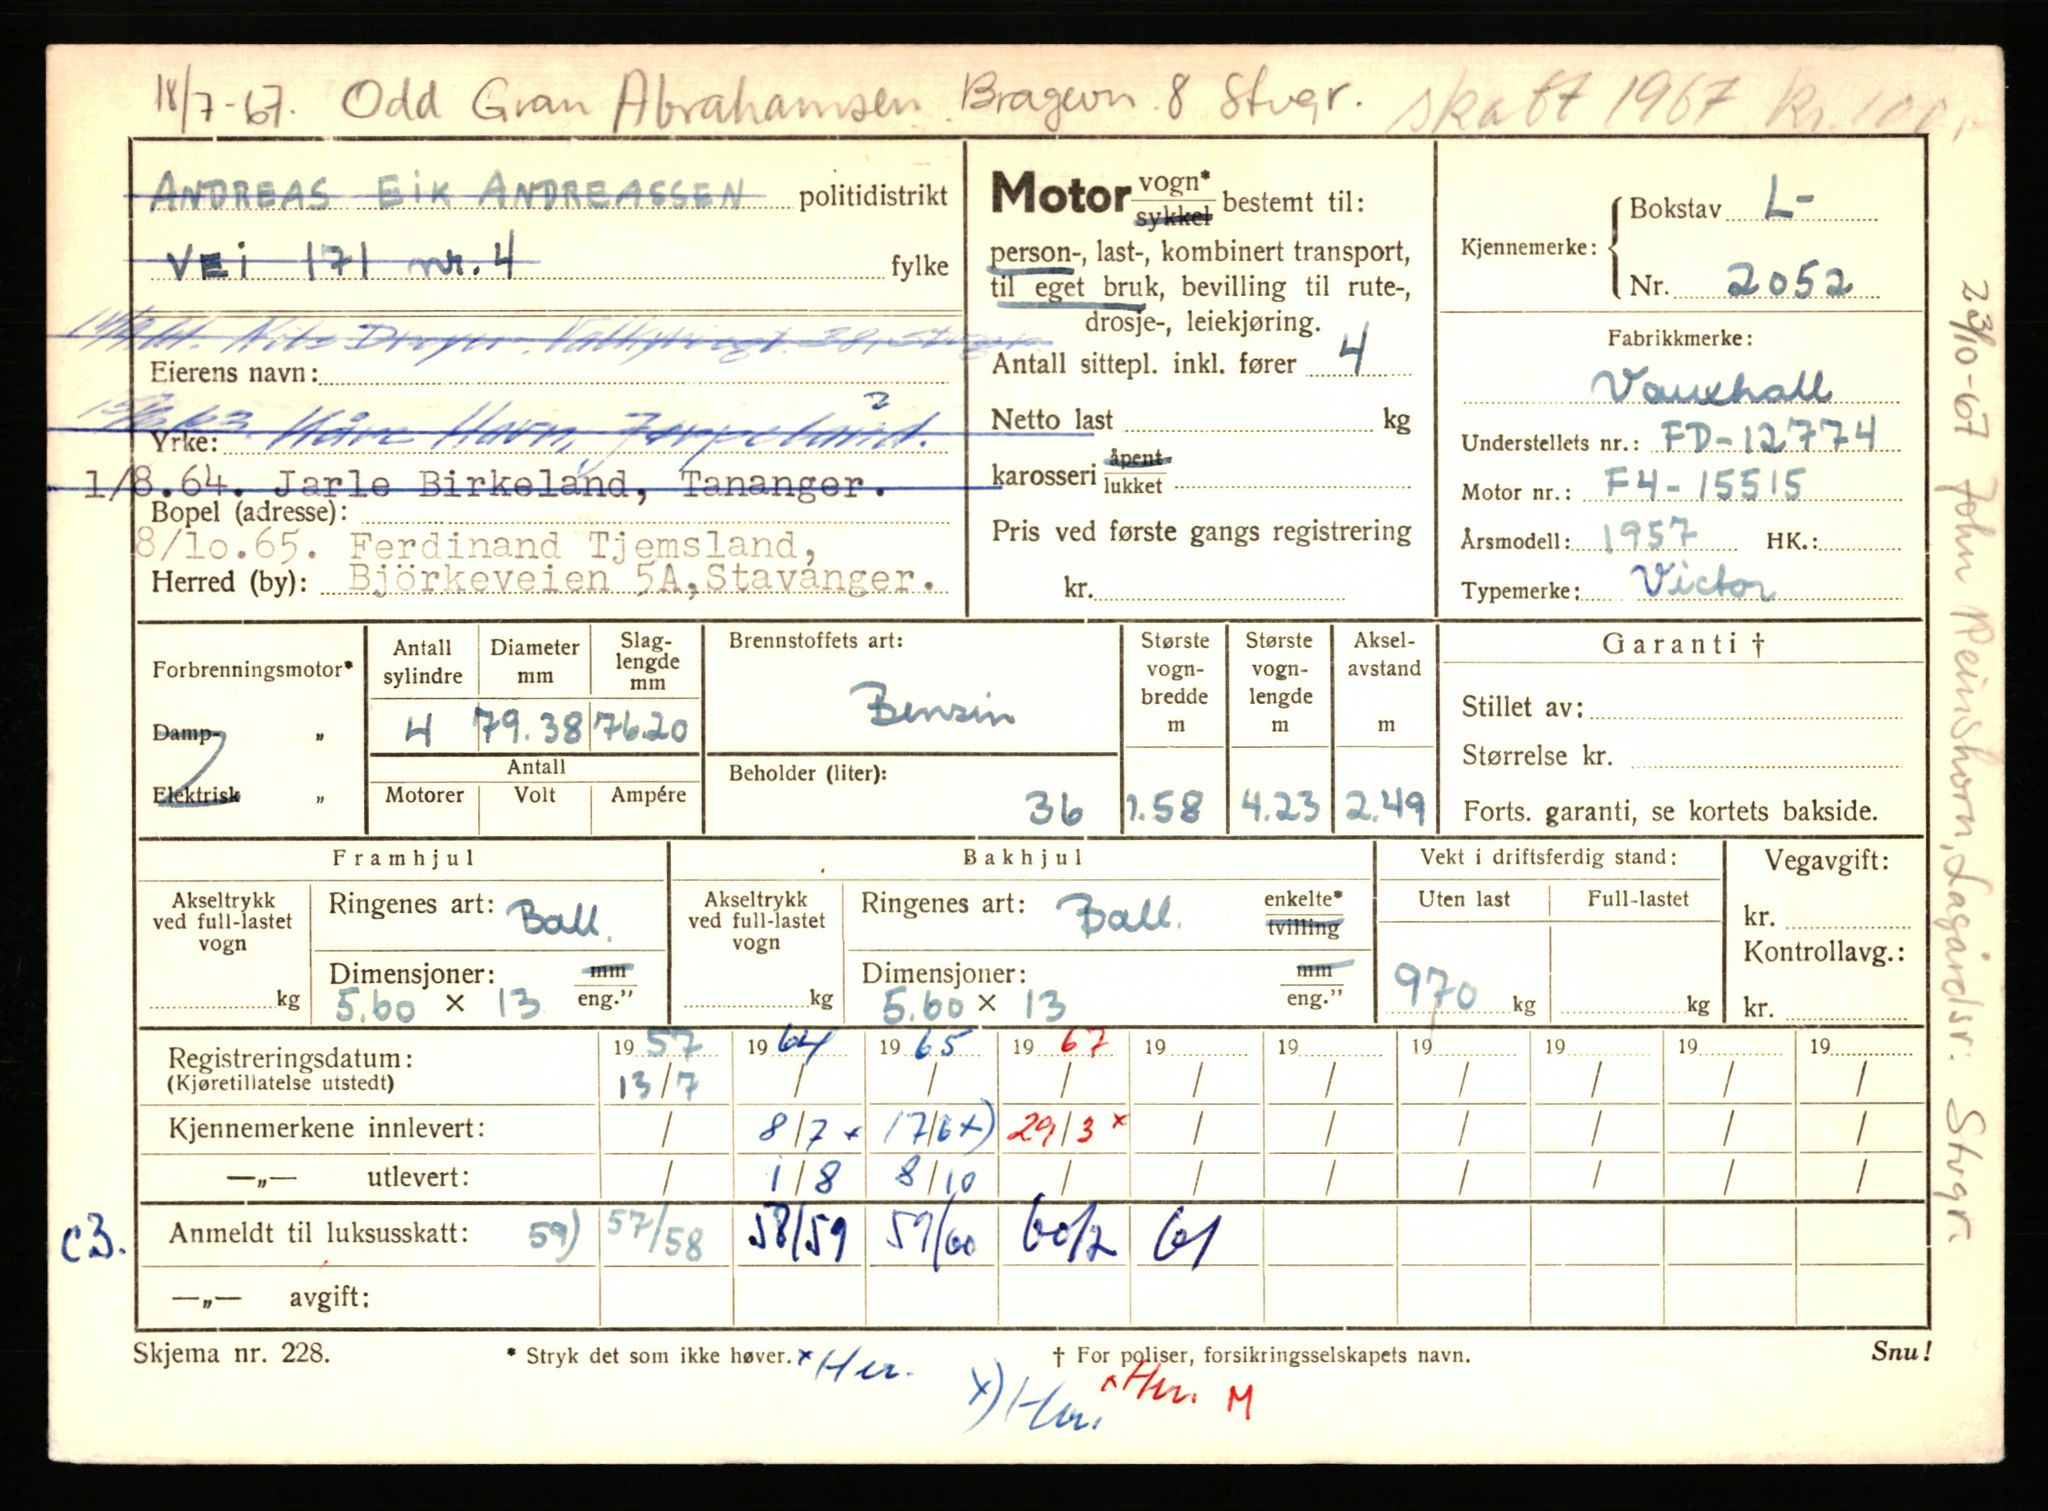 18/7-67. Odd Gran Abrahamsen. Bragevn. 8 Stvgr. skatt 1967 kr. 100,-
ANDREAS EIK ANDREASSEN politidistrikt
VEI 171 nr. 4 fylke
Eierens navn:
Yrke: Kåre Havn, Jørpeland.
1/8.64. Jarle Birkeland, Tananger.
Bopel (adresse):
8/10.65. Ferdinand Tjemsland,
Herred (by): Björkeveien 5A, Stavanger.
Motor vogn* sykkel bestemt til:
person-, last-, kombinert transport,
til eget bruk, bevilling til rute-,
drosje-, leiekjøring.
Antall sittepl. inkl. fører 4
Netto last kg
karosseri åpent lukket
Pris ved første gangs registrering
kr.
Kjennemerke: Bokstav L-
Nr. 2052
Fabrikkmerke:
Vauxhall
Understellets nr.: FD-12774
Motor nr.: F4-15515
Årsmodell: 1957 HK.:
Typemerke: Victor
23/10-67 John Reinshorn, Lagårdsv. Stvgr.
Forbrenningsmotor*
Damp- „
Elektrisk „
Antall sylindre Diameter mm Slag-lengde mm
4 79.38 76.20
Antall
Motorer Volt Ampére
Brennstoffets art:
Bensin
Beholder (liter):
36
Største vogn-bredde m Største vogn-lengde m Aksel-avstand m
1.58 4.23 2.49
Garanti †
Stillet av:
Størrelse kr.
Forts. garanti, se kortets bakside.
Framhjul
Akseltrykk ved full-lastet vogn
kg
Ringenes art: Ball.
Dimensjoner: mm
5.60 × 13 eng."
Bakhjul
Akseltrykk ved full-lastet vogn
kg
Ringenes art: Ball. enkelte* tvilling
Dimensjoner: mm
5.60 × 13 eng."
Vekt i driftsferdig stand:
Uten last Full-lastet
970 kg kg
Vegavgift:
kr.
Kontrollavg.:
kr.
Registreringsdatum: 19 57 19 64 19 65 19 67 19 19 19 19 19 19
(Kjøretillatelse utstedt) 13/7 / / / / / / / / /
Kjennemerkene innlevert: / 8/7 x 17/6 x) 29/3 x / / / / / /
—„— utlevert: / 1/8 8/10 / / / / / / /
C3. Anmeldt til luksusskatt: 59) 57/58 58/59 59/60 60/2 61
—„— avgift:
Skjema nr. 228. * Stryk det som ikke høver. † For poliser, forsikringsselskapets navn. Snu!
M